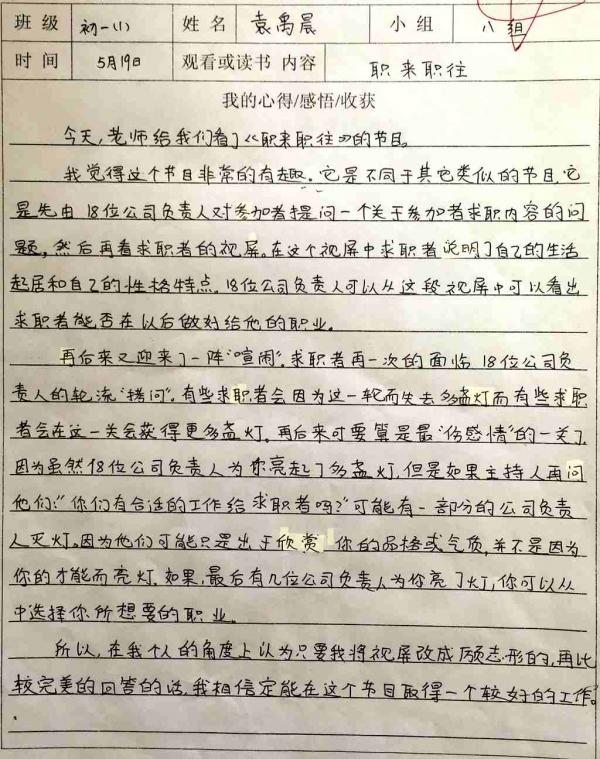 班 级 初一(1) 姓 名 袁禹晨 小 组 八组
时 间 5月19日 观看或读书 内容 职来职往
我的心得/感悟/收获
今天,老师给我们看了《职来职往》的节目。
我觉得这个节目非常的有趣。它是不同于其它类似的节目,它
是先由18位公司负责人对参加者提问一个关于参加者求职内容的问
题,然后再看求职者的视屏。在这个视屏中求职者说明了自己的生活
起居和自己的性格特点。18位公司负责人可以从这段视屏中可以看出
求职者能否在以后做好给他的职业。
再后来又迎来了一阵“喧闹”。求职者再一次的面临18位公司负
责人的轮流“拷问”。有些求职者会因为这一轮而失去多盏灯而有些求职
者会在这一关会获得更多盏灯。再后来可要算是最“伤感情”的一关了,
因为虽然18位公司负责人为你亮起了多盏灯,但是如果主持人再问
他们:“你们有合适的工作给求职者吗?”可能有一部分的公司负责
人灭灯。因为他们可能只是出于欣赏你的品格或气质,并不是因为
你的才能而亮灯。如果,最后有几位公司负责人为你亮了灯,你可以从
中选择你所想要的职业。
所以,在我个人的角度上以为只要我将视屏改成励志形的,再比
较完美的回答的话,我相信定能在这个节目取得一个较好的工作。